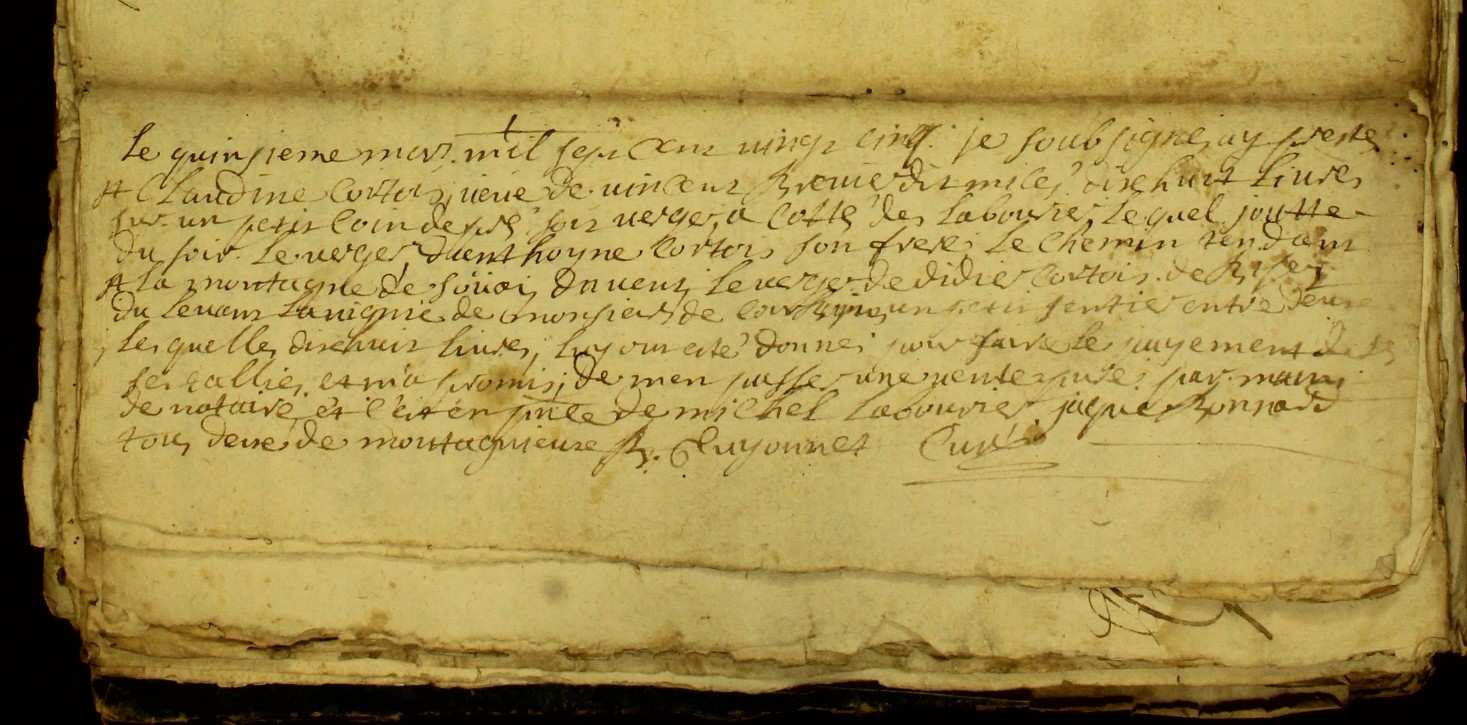 le quinsieme mars mil sept cent vingt cinq je soub signe ay preste
A Claudine Cortois veve de vincent dit milet dix huit livres
sur un petit coin de pré sous verger a cotté des labourier, lequel joutte
du soir le verger danthoyne Cortois son frere, le chemin tendant
A la montagne de du vent le verger de didier Cortois de
du levant la vignie de monsieur de un petit sentier entre deux
lesquelles dixhuit livres luy ont eté donnes pour faire le payement de
ses tallies et m'a promis de men passer une vente par main
de notaire et c'est en pnce de michel labourier jaque Bonnard
tous deux de montagnieux Guyonnet Curé